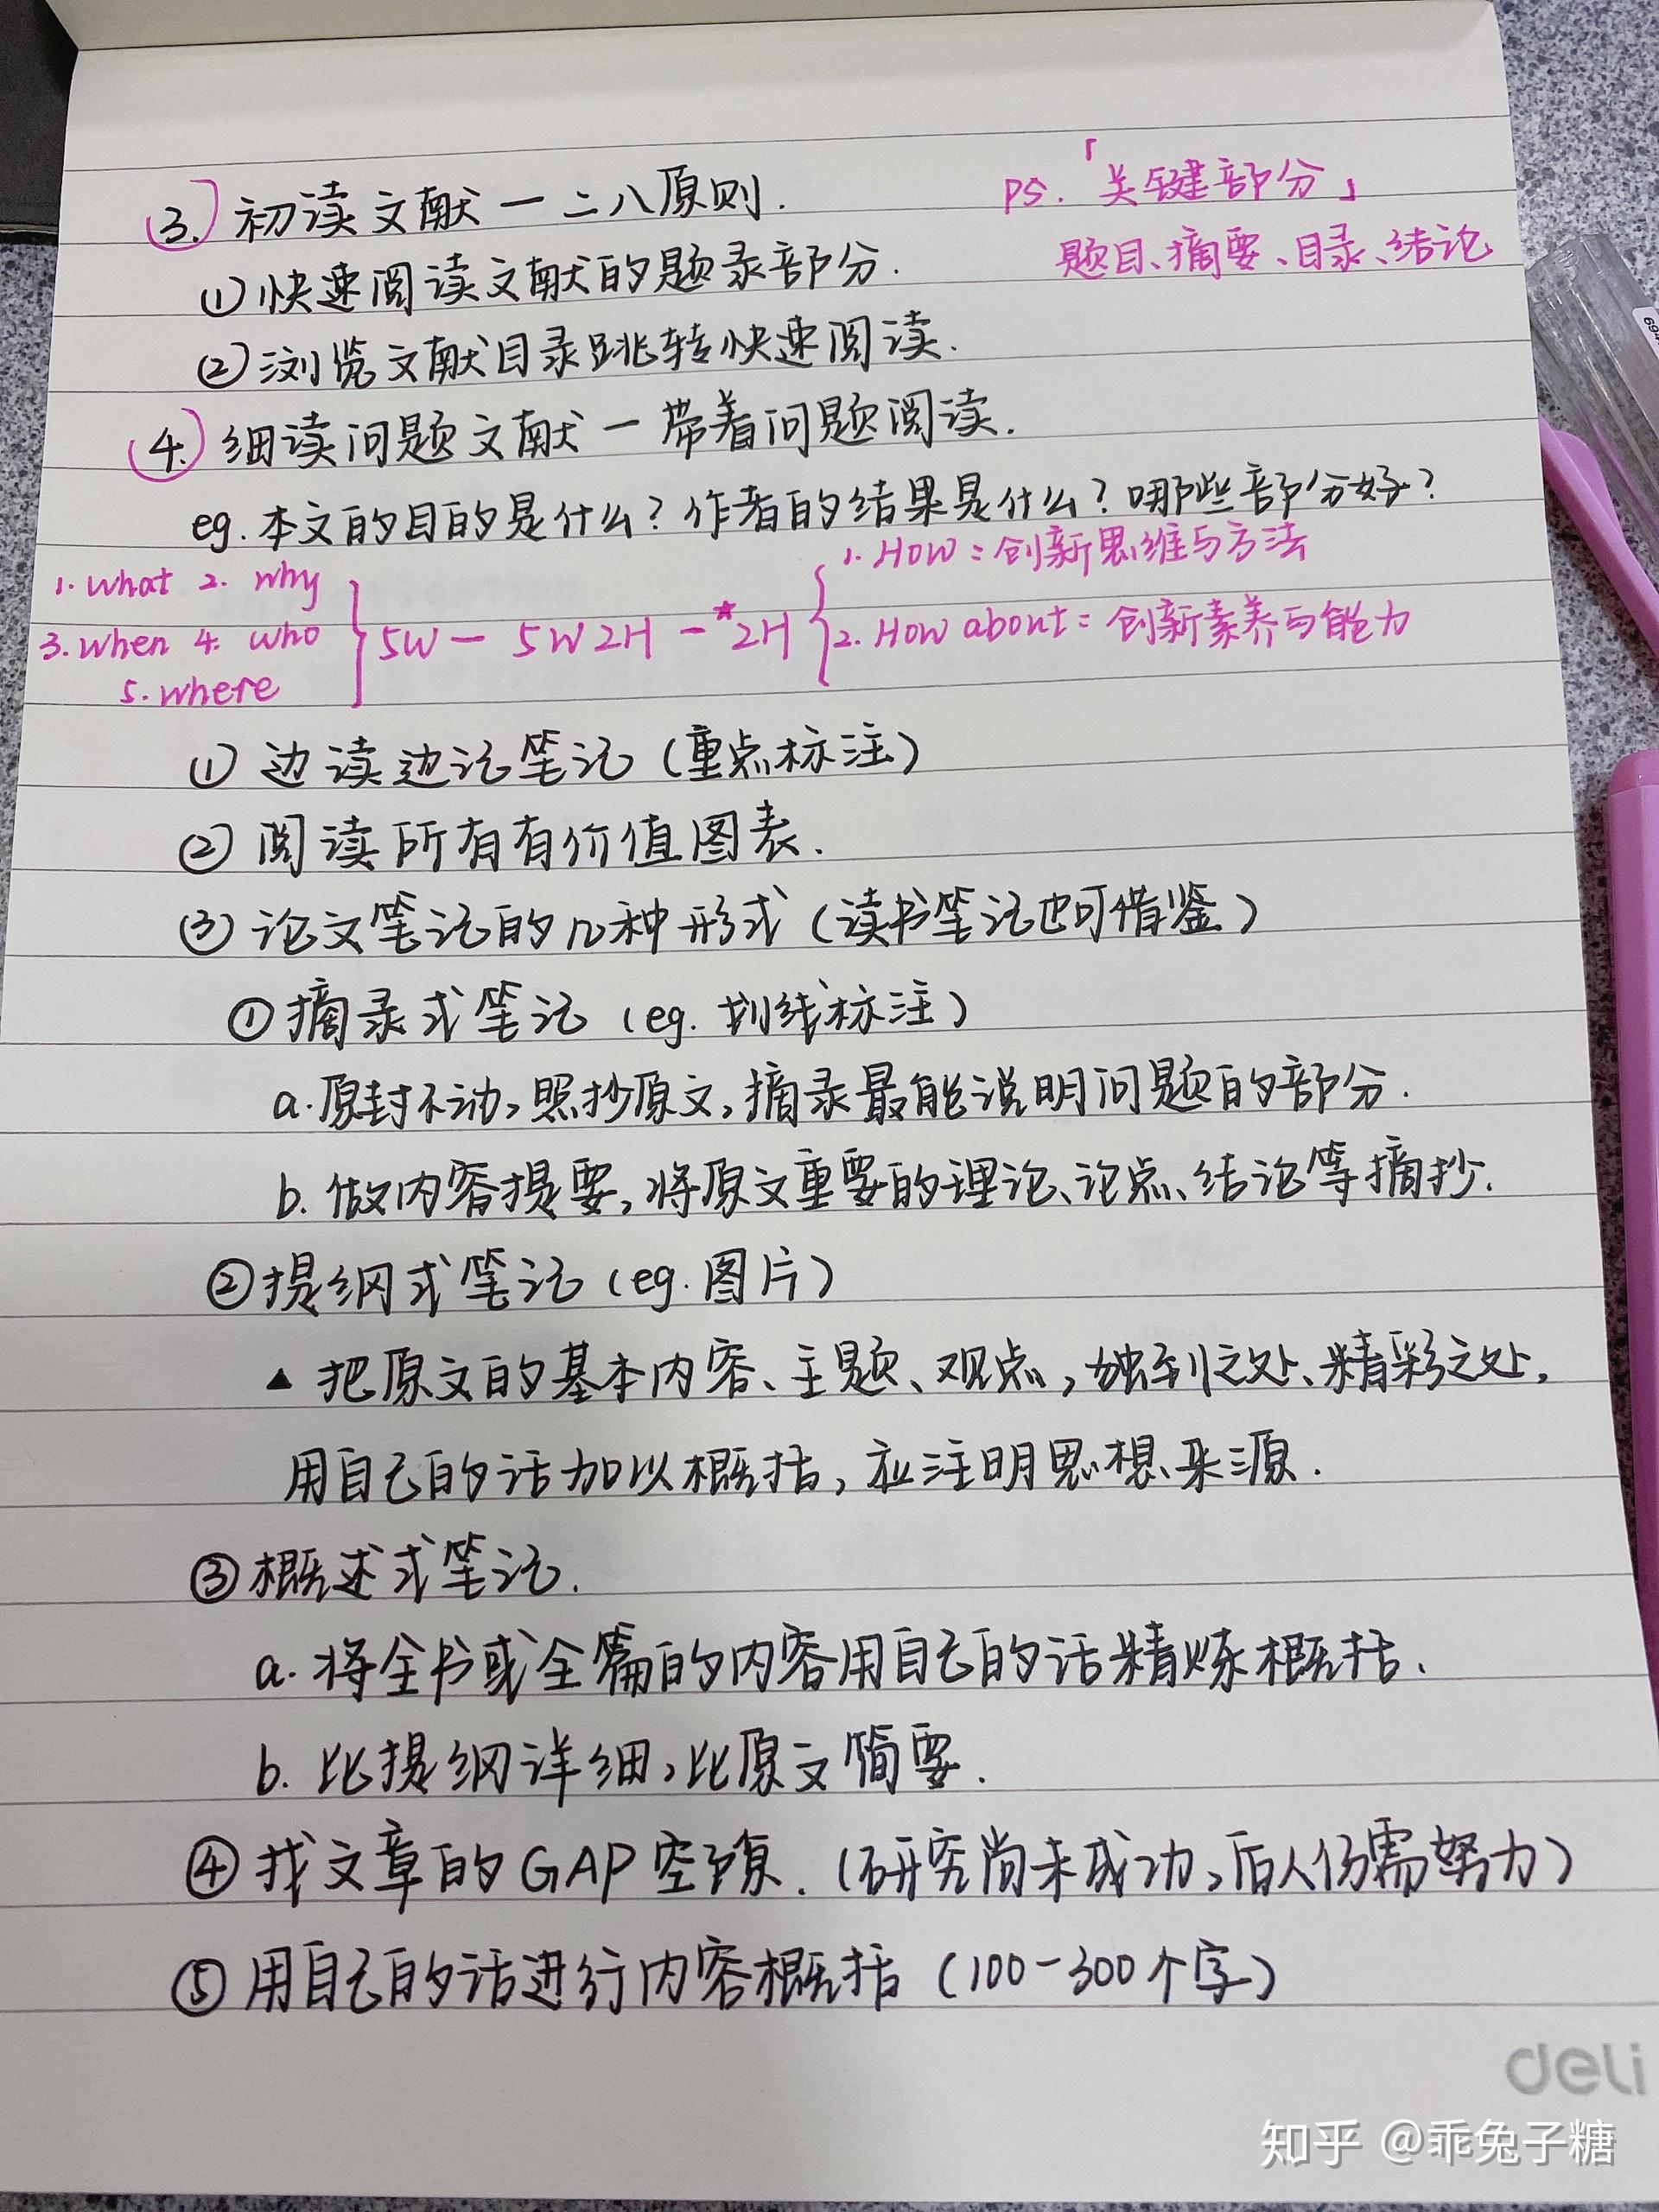 3. 初读文献一二八原则.
PS.「关键部分」
题目、摘要、目录、结论
(1)快速阅读文献的题录部分.
(2)浏览文献目录跳转快速阅读.
4. 细读问题文献一带着问题阅读.
eg.本文的目的是什么?作者的结果是什么?哪些部分好?
1. what 2. why
3. when 4. who
5. where
5W — 5W2H — *2H
1. How：创新思维与方法
2. How about：创新素养与能力
(1) 边读边记笔记(重点标注)
(2) 阅读所有有价值图表.
(3) 论文笔记的几种形式(读书笔记也可借鉴)
①摘录式笔记(eg.划线标注)
a.原封不动,照抄原文,摘录最能说明问题的部分.
b.做内容提要,将原文重要的理论、论点、结论等摘抄.
②提纲式笔记(eg.图片)
▲ 把原文的基本内容、主题、观点,独到之处、精彩之处,
用自己的话加以概括,应注明思想来源.
③概述式笔记.
a.将全书或全篇的内容用自己的话精炼概括.
b.比提纲详细,比原文简要.
④找文章的GAP空隙.(研究尚未成功,后人仍需努力)
⑤用自己的话进行内容概括(100-300个字)
deli
知乎 @乖兔子糖
694